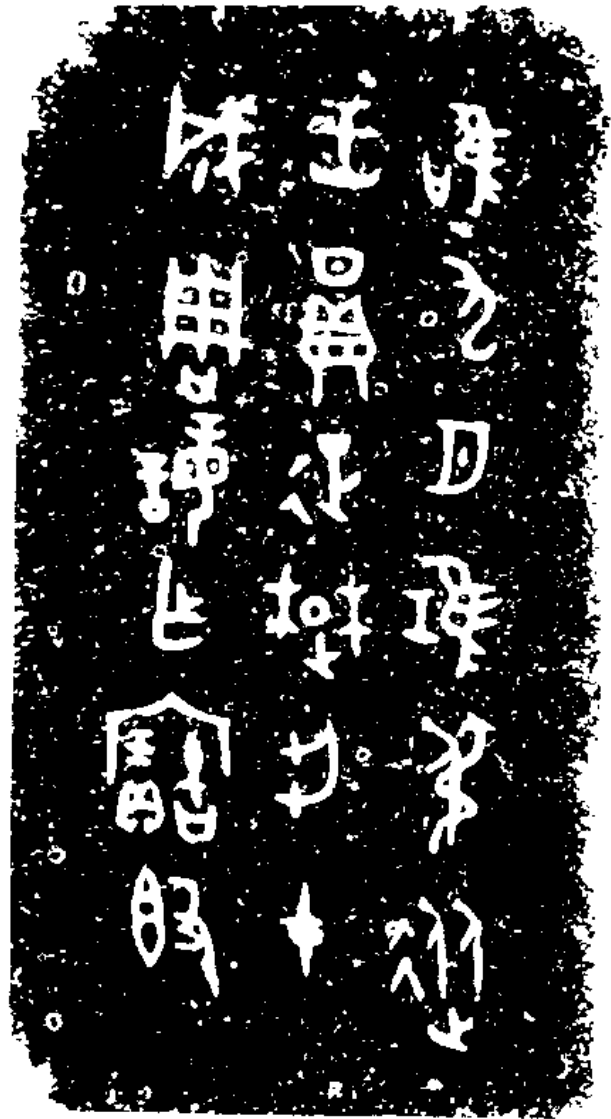 唯九月𨾊弔從
王員征楚荊才
成周誨乍寶𣪘